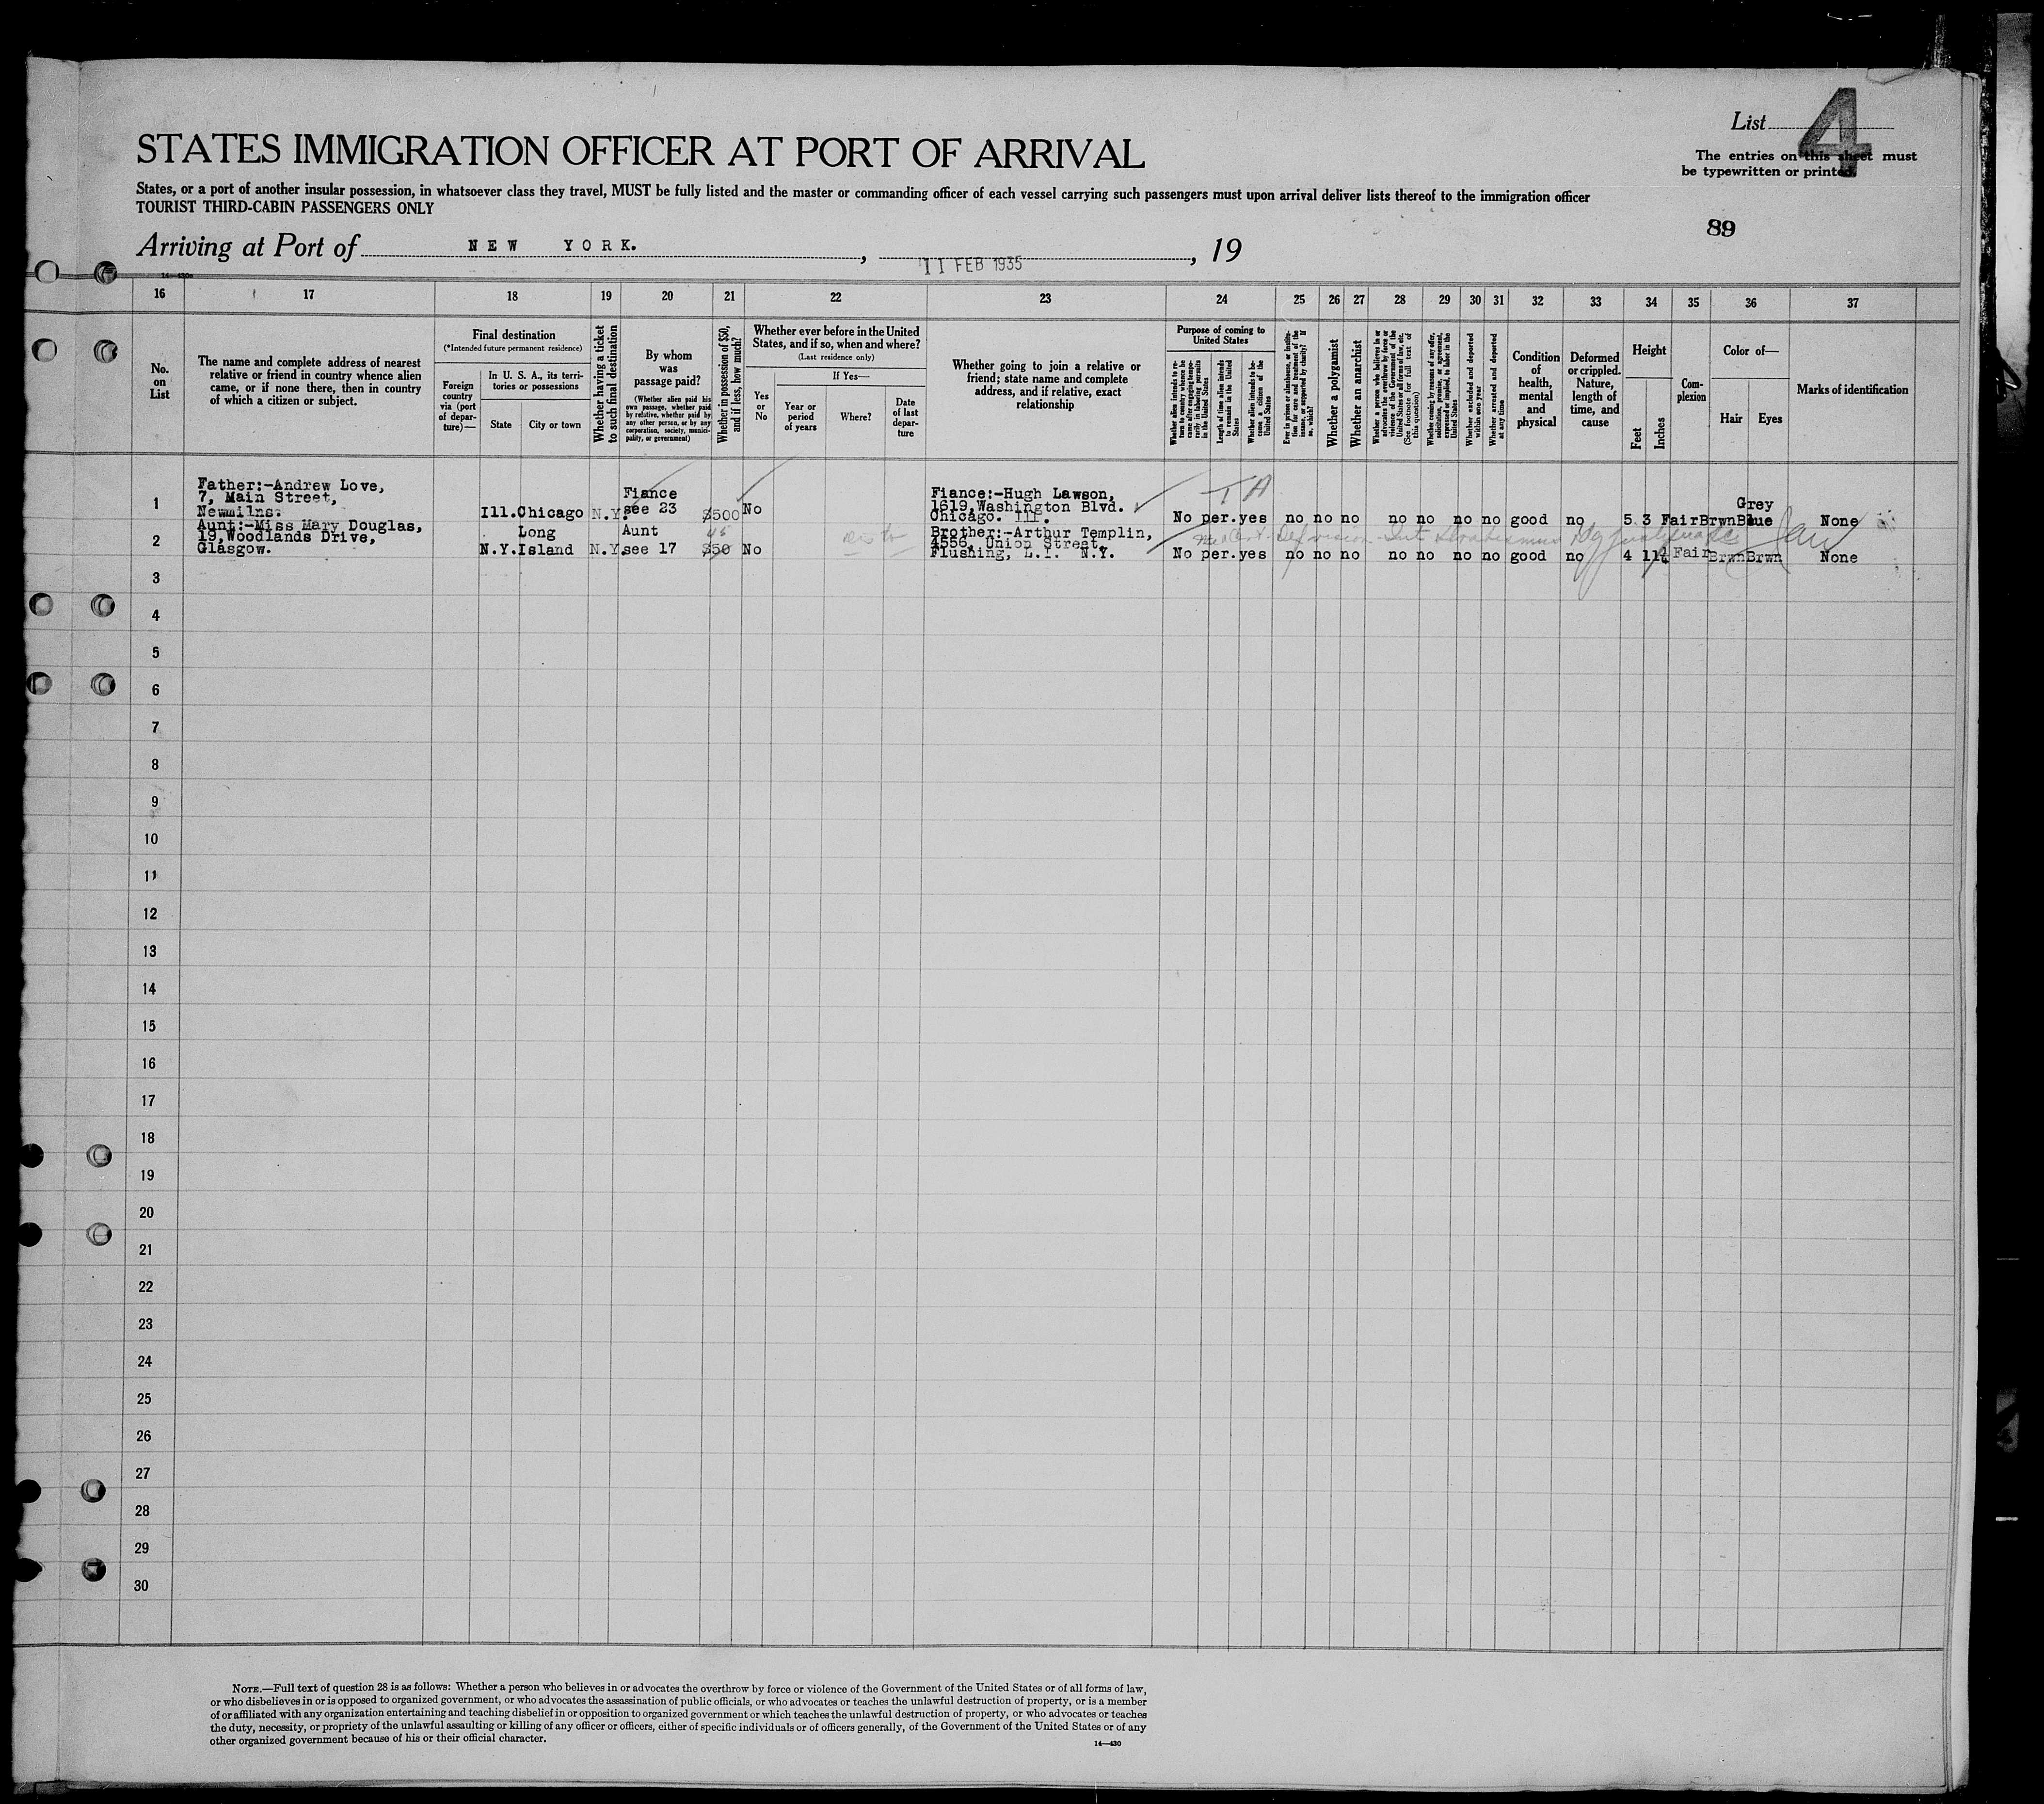 List 4
STATES IMMIGRATION OFFICER AT PORT OF ARRIVAL
The entries on this sheet must
be typewritten or printed.
States, or a port of another insular possession, in whatsoever class they travel, MUST be fully listed and the master or commanding officer of each vessel carrying such passengers must upon arrival deliver lists thereof to the immigration officer
TOURIST THIRD-CABIN PASSENGERS ONLY
89
Arriving at Port of NEW YORK. , 11 FEB 1935 , 19
14—430a
16 17 18 19 20 21 22 23 24 25 26 27 28 29 30 31 32 33 34 35 36 37
No.
on
List
The name and complete address of nearest
relative or friend in country whence alien
came, or if none there, then in country
of which a citizen or subject.
Final destination
(*Intended future permanent residence)
Foreign
country
via (port
of depar-
ture)—
In U. S. A., its terri-
tories or possessions
State City or town
Whether having a ticket
to such final destination
By whom
was
passage paid?
(Whether alien paid his
own passage, whether paid
by relative, whether paid by
any other person, or by any
corporation, society, munici-
pality, or government)
Whether in possession of $50,
and if less, how much?
Whether ever before in the United
States, and if so, when and where?
(Last residence only)
Yes
or
No
If Yes—
Year or
period
of years
Where?
Date
of last
depar-
ture
Whether going to join a relative or
friend; state name and complete
address, and if relative, exact
relationship
Purpose of coming to
United States
Whether alien intends to re-
turn to country whence he
came after engaging tempo-
rarily in laboring pursuits
in the United States
Length of time alien intends
to remain in the United
States
Whether alien intends to be-
come a citizen of the
United States
Ever in prison or almshouse, or institu-
tion for care and treatment of the
insane, or supported by charity? If
so, which?
Whether a polygamist
Whether an anarchist
Whether a person who believes in or
advocates the overthrow by force or
violence of the Government of the
United States or all forms of law, etc.
(See footnote for full text of
this question)
Whether coming by reason of any offer,
solicitation, promise, or agreement,
expressed or implied, to labor in the
United States
Whether excluded and deported
within one year
Whether arrested and deported
at any time
Condition
of
health,
mental
and
physical
Deformed
or crippled.
Nature,
length of
time, and
cause
Height
Feet
Inches
Com-
plexion
Color of—
Hair Eyes
Marks of identification
Father:-Andrew Love,
7, Main Street,
Newmilns.
1 Ill. Chicago N.Y. Fiance see 23 $500 No
Fiance:-Hugh Lawson,
1619, Washington Blvd.
Chicago. Ill.
T A
No per. yes no no no no no no no good no 5 3 Fair Brwn Grey Blue None
Aunt:-Miss Mary Douglas,
19, Woodlands Drive,
Glasgow.
2 N.Y. Long Island N.Y. Aunt see 17 $50 45 No
Brother:-Arthur Templin,
4556, Union Street,
Flushing, L.I. N.Y.
No per. yes no no no no no no no good no 4 11¼ Fair Brwn Brwn None
3
4
5
6
7
8
9
10
11
12
13
14
15
16
17
18
19
20
21
22
23
24
25
26
27
28
29
30
NOTE.—Full text of question 28 is as follows: Whether a person who believes in or advocates the overthrow by force or violence of the Government of the United States or of all forms of law,
or who disbelieves in or is opposed to organized government, or who advocates the assassination of public officials, or who advocates or teaches the unlawful destruction of property, or is a member
of or affiliated with any organization entertaining and teaching disbelief in or opposition to organized government or which teaches the unlawful destruction of property, or who advocates or teaches
the duty, necessity, or propriety of the unlawful assaulting or killing of any officer or officers, either of specific individuals or of officers generally, of the Government of the United States or of any
other organized government because of his or their official character.
14—430